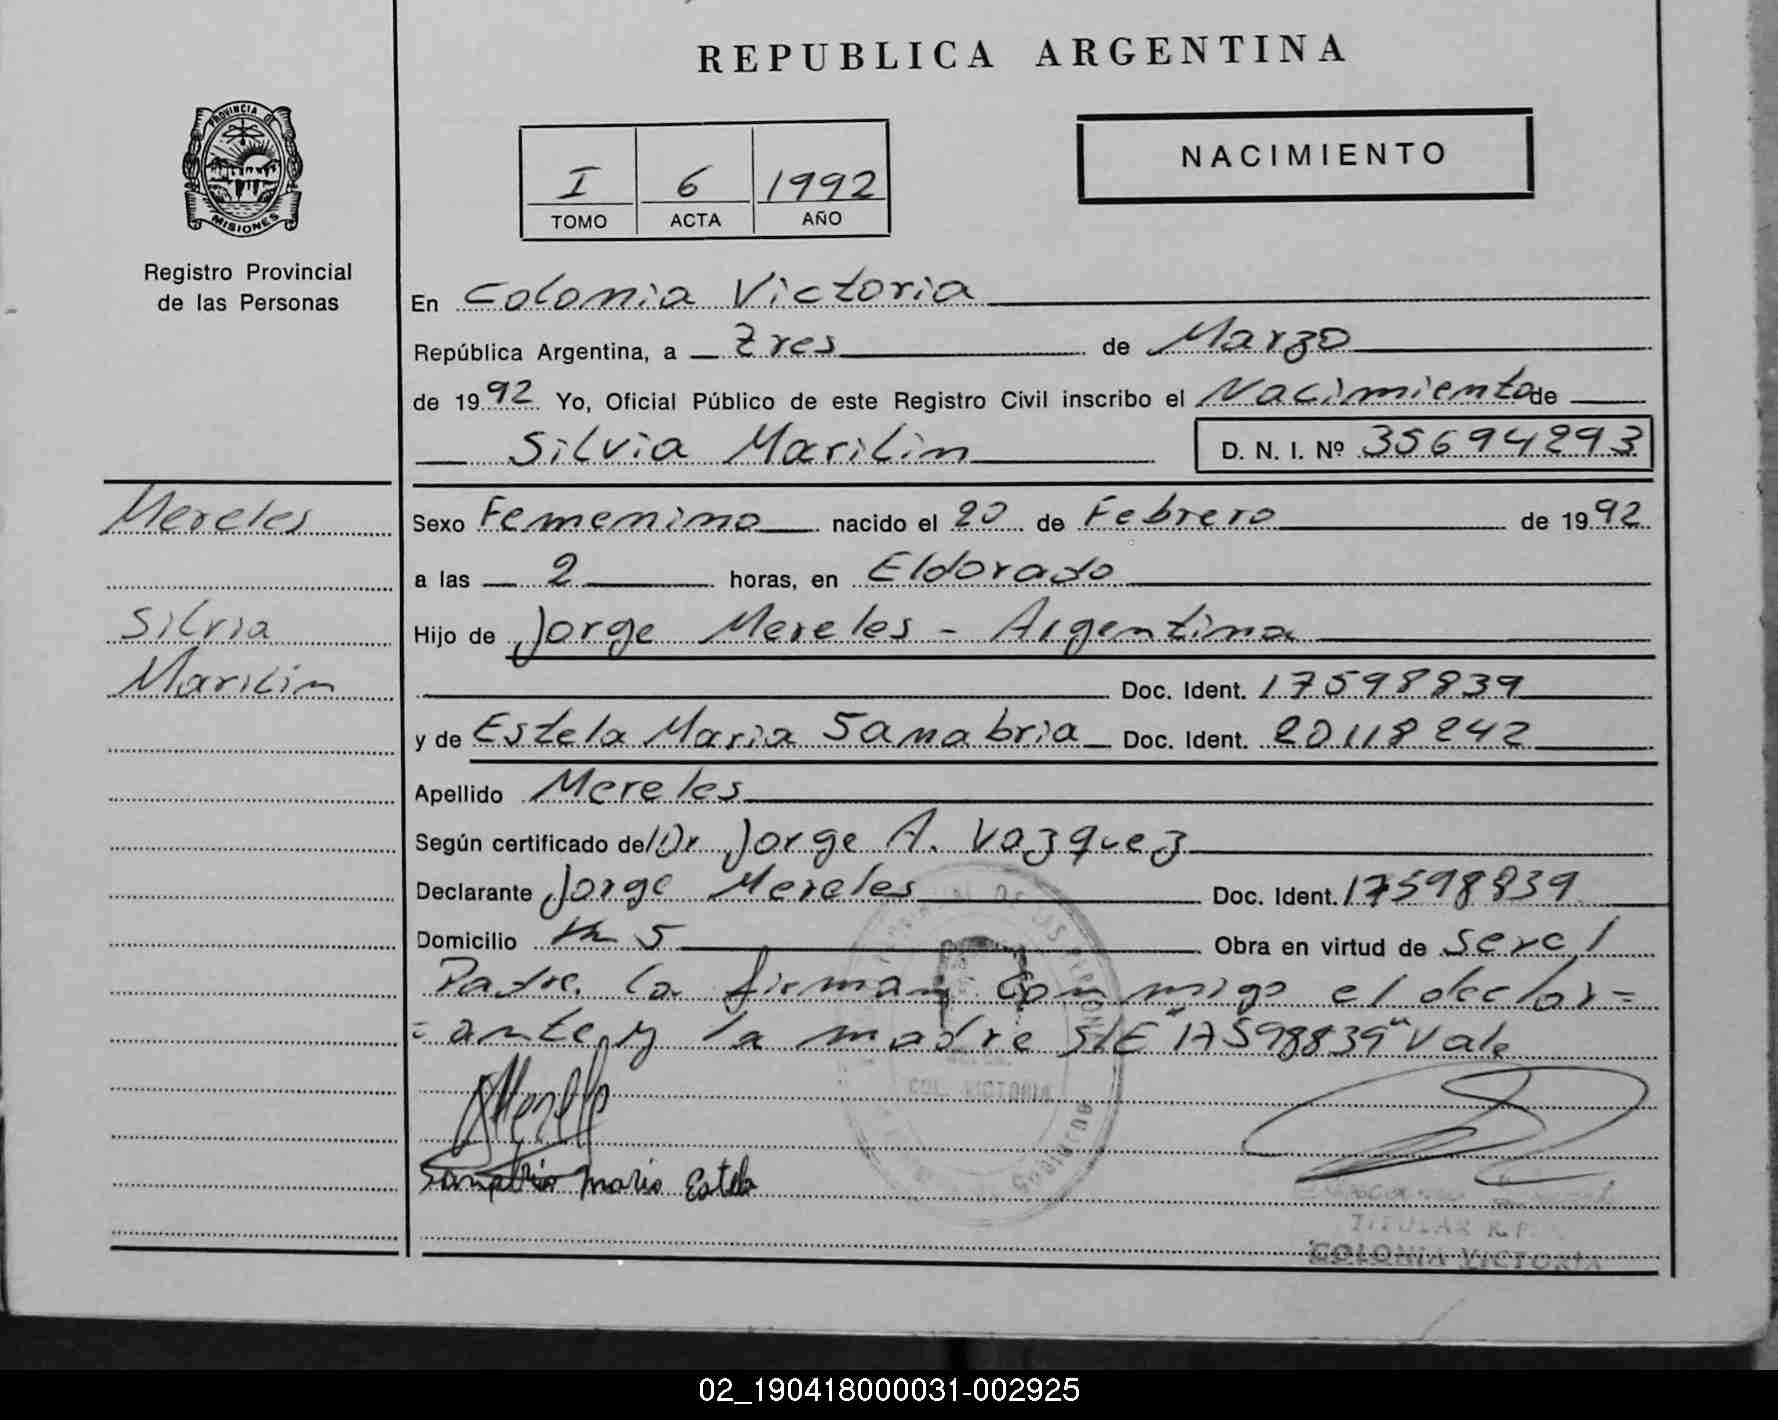 REPUBLICA ARGENTINA
PROVINCIA DE
MISIONES
Registro Provincial
de las Personas
I 6 1992
TOMO ACTA AÑO
NACIMIENTO
En Colonia Victoria
República Argentina, a tres de Marzo
de 1992 Yo, Oficial Público de este Registro Civil inscribo el Nacimiento de
Silvia Marilin D. N. I. Nº 35694293
Mereles
Silvia
Marilin
Sexo Femenino nacido el 20 de Febrero de 1992
a las 2 horas, en Eldorado
Hijo de Jorge Mereles - Argentina
Doc. Ident. 17598839
y de Estela Maria Sanabria Doc. Ident. 20118242
Apellido Mereles
Según certificado del Dr Jorge A. Vazquez
Declarante Jorge Mereles Doc. Ident. 17598839
Domicilio Km 5 Obra en virtud de ser el
Padre. La firman conmigo el declar=
=ante y la madre S/E "17598839" Vale
COL. VICTORIA
Sanabria Maria Estela
TITULAR R.P.
COLONIA VICTORIA
02_190418000031-002925